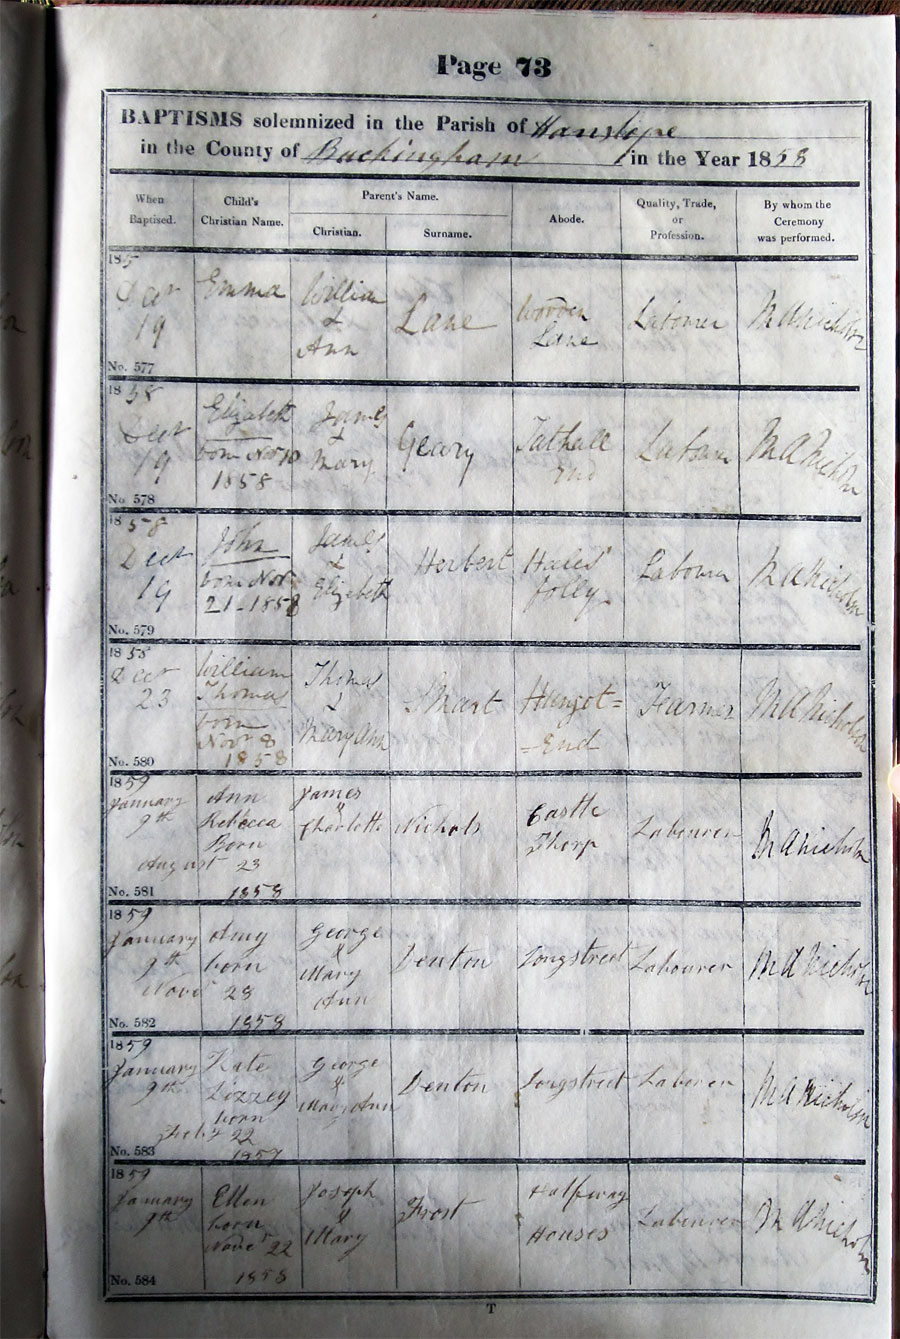 Page 73
BAPTISMS solemnized in the Parish of Hanslope
in the County of Buckingham in the Year 1858
When Baptised.
Child's Christian Name.
Parent's Name.
Christian.
Surname.
Abode.
Quality, Trade, or Profession.
By whom the Ceremony was performed.
185
Decr
19
No. 577
Emma
William
&
Ann
Lane
Lane
Labourer
M A Nicholson
1858
Decr
19
No. 578
Elizabeth
born Nov 10
1858
James
&
Mary
Geary
Tathall
End
Labourer
M A Nicholson
1858
Decr
19
No. 579
John
born Nov
21 - 1858
James
&
Elizabeth
Herbert
Hales'
folly
Labourer
M A Nicholson
1858
Decr
23
No. 580
William
Thomas
born
Novr 8
1858
Thomas
&
Mary Ann
Smart
Hungot =
= End
Fearmer
M A Nicholson
1859
January
9th
August
No. 581
Ann
Rebecca
Born
23
1858
James
"
Charlotte
Nichols
Castle
Thorp
Labourer
M A Nicholson
1859
January
9th
Nove
No. 582
Amy
born
28
1858
George
&
Mary
Ann
Denton
Longstreet
Labourer
M A Nicholson
1859
January
9th
No. 583
Kate
Lizzey
born
Feby 22
1857
George
&
Mary Ann
Denton
Longstreet
Laborer
M A Nicholson
1859
January
9th
No. 584
Ellen
born
Novr 22
1858
Joseph
&
Mary
Frost
Halfway
Houses
Labourer
M A Nicholson
T